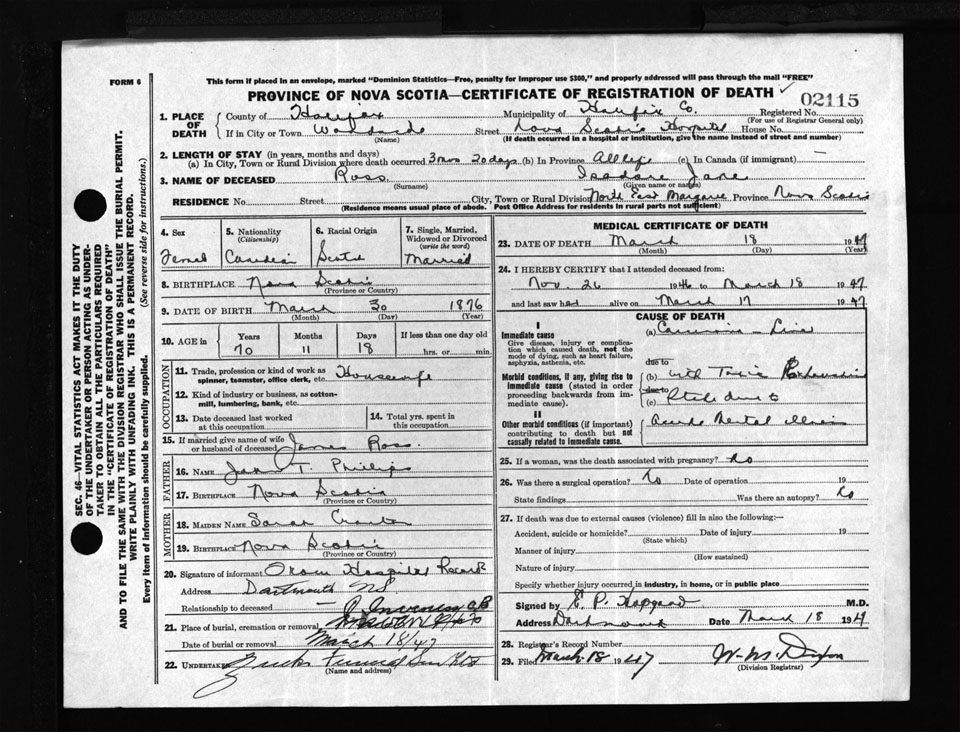 FORM 6
This form if placed in an envelope, marked "Dominion Statistics—Free, penalty for improper use $300," and properly addressed will pass through the mail "FREE"
PROVINCE OF NOVA SCOTIA—CERTIFICATE OF REGISTRATION OF DEATH
02115
1. PLACE OF DEATH
County of Halifax Municipality of Halifax Co. Registered No.
(For use of Registrar General only)
If in City or Town Street Nova Scotia Hospital House No.
(Name) (If death occurred in a hospital or institution, give the name instead of street and number)
2. LENGTH OF STAY (in years, months and days)
(a) In City, Town or Rural Division where death occurred 3 mos 20 days (b) In Province All life (c) In Canada (if immigrant) —
3. NAME OF DECEASED Ross Jane
(Surname) (Given name or names)
RESIDENCE No. Street City, Town or Rural Division North East Margaree Province Nova Scotia
(Residence means usual place of abode. Post Office Address for residents in rural parts not sufficient)
4. Sex
5. Nationality (Citizenship)
6. Racial Origin
7. Single, Married, Widowed or Divorced (write the word)
Canadian Married
8. BIRTHPLACE Nova Scotia
(Province or Country)
9. DATE OF BIRTH March 30 1876
(Month) (Day) (Year)
10. AGE in Years Months Days If less than one day old
70 11 18 hrs. or min.
OCCUPATION
11. Trade, profession or kind of work as spinner, teamster, office clerk, etc. Housewife
12. Kind of industry or business, as cotton-mill, lumbering, bank, etc.
13. Date deceased last worked at this occupation
14. Total yrs. spent in this occupation
15. If married give name of wife or husband of deceased James Ross
FATHER
16. NAME T. Phillips
17. BIRTHPLACE Nova Scotia
(Province or Country)
MOTHER
18. MAIDEN NAME Sarah
19. BIRTHPLACE Nova Scotia
(Province or Country)
20. Signature of informant From Hospital Record
Address Dartmouth NS.
Relationship to deceased —
21. Place of burial, cremation or removal
Date of burial or removal March 18/47
22. UNDERTAKER
(Name and address)
MEDICAL CERTIFICATE OF DEATH
23. DATE OF DEATH March 18 1947
(Month) (Day) (Year)
24. I HEREBY CERTIFY that I attended deceased from:
Nov. 26 1946 to March 18 1947
and last saw her alive on March 17 1947
CAUSE OF DEATH
I
Immediate cause
Give disease, injury or complication which caused death, not the mode of dying, such as heart failure, asphyxia, asthenia, etc.
(a)
due to
Morbid conditions, if any, giving rise to immediate cause (stated in order proceeding backwards from immediate cause).
(b) with Toxic Exhaustion
due to
(c)
II
Other morbid conditions (if important) contributing to death but not causally related to immediate cause.
25. If a woman, was the death associated with pregnancy? No
26. Was there a surgical operation? No Date of operation 19
State findings Was there an autopsy? No
27. If death was due to external causes (violence) fill in also the following:—
Accident, suicide or homicide? Date of injury 19
(State which)
Manner of injury
(How sustained)
Nature of injury
Specify whether injury occurred in industry, in home, or in public place
Signed by M.D.
Address Dartmouth Date March 18 194
28. Registrar's Record Number
29. Filed March 18 1947
(Division Registrar)
SEC. 46—VITAL STATISTICS ACT MAKES IT THE DUTY
OF THE UNDERTAKER OR PERSON ACTING AS UNDER-
TAKER TO OBTAIN ALL THE PARTICULARS REQUIRED
IN THE "CERTIFICATE OF REGISTRATION OF DEATH"
AND TO FILE THE SAME WITH THE DIVISION REGISTRAR WHO SHALL ISSUE THE BURIAL PERMIT.
WRITE PLAINLY WITH UNFADING INK. THIS IS A PERMANENT RECORD.
Every item of information should be carefully supplied. (See reverse side for instructions.)